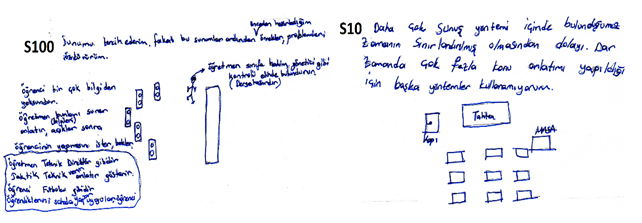 S100
önceden hazırladığım
Sunumu tercih ederim, fakat bu sunumların ardından örnekler, problemleri
öğretmen sınıfa hakim, yönetici gibi
kontrolü elinde bulunduran
öğrenci bir çok bilgiden
yoksundur.
öğretmen konuları sunan
(bilgileri)
anlatır, açıklar sonra
öğrencinin yapmasını ister, bekler.
öğretmen Teknik Direktör gibidir
Taktik Teknik verir anlatır gösterir.
öğrenci Futbolcu gibidir
öğrendiklerini sahada uygular öğrenci
S10
Daha çok Sunuş yöntemi içinde bulunduğumuz
Zamanın Sınırlandırılmış olmasından dolayı. Dar
Zamanda çok fazla konu anlatımı yapıldığı
için başka yöntemler kullanamıyorum.
Tahta
Kapı
MASA